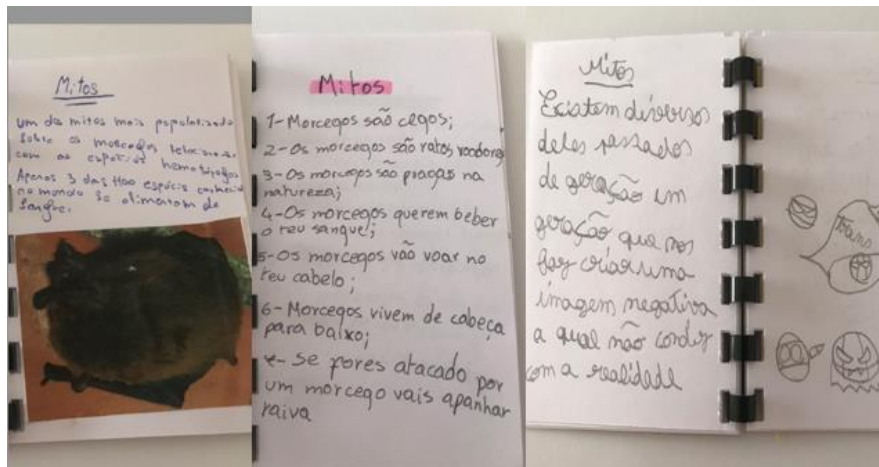 Mitos
um dos mitos mais popularizado
sobre os morcegos relaciona-se
com as espécies hematófagas
Apenas 3 das 1400 espécies
no mundo se alimentam de
Sangue.
Mitos
1- Morcegos são cegos;
2- Os morcegos são ratos voadores
3- Os morcegos são pragas na
natureza;
4- Os morcegos querem beber
o teu sangue;
5- Os morcegos vão voar no
teu cabelo;
6- Morcegos vivem de cabeça
para baixo;
7- Se fores atacado por
um morcego vais apanhar
raiva
Mitos
Existem diversos
deles passados
de geração em
geração que nos
faz criar uma
imagem negativa
a qual não condiz
com a realidade